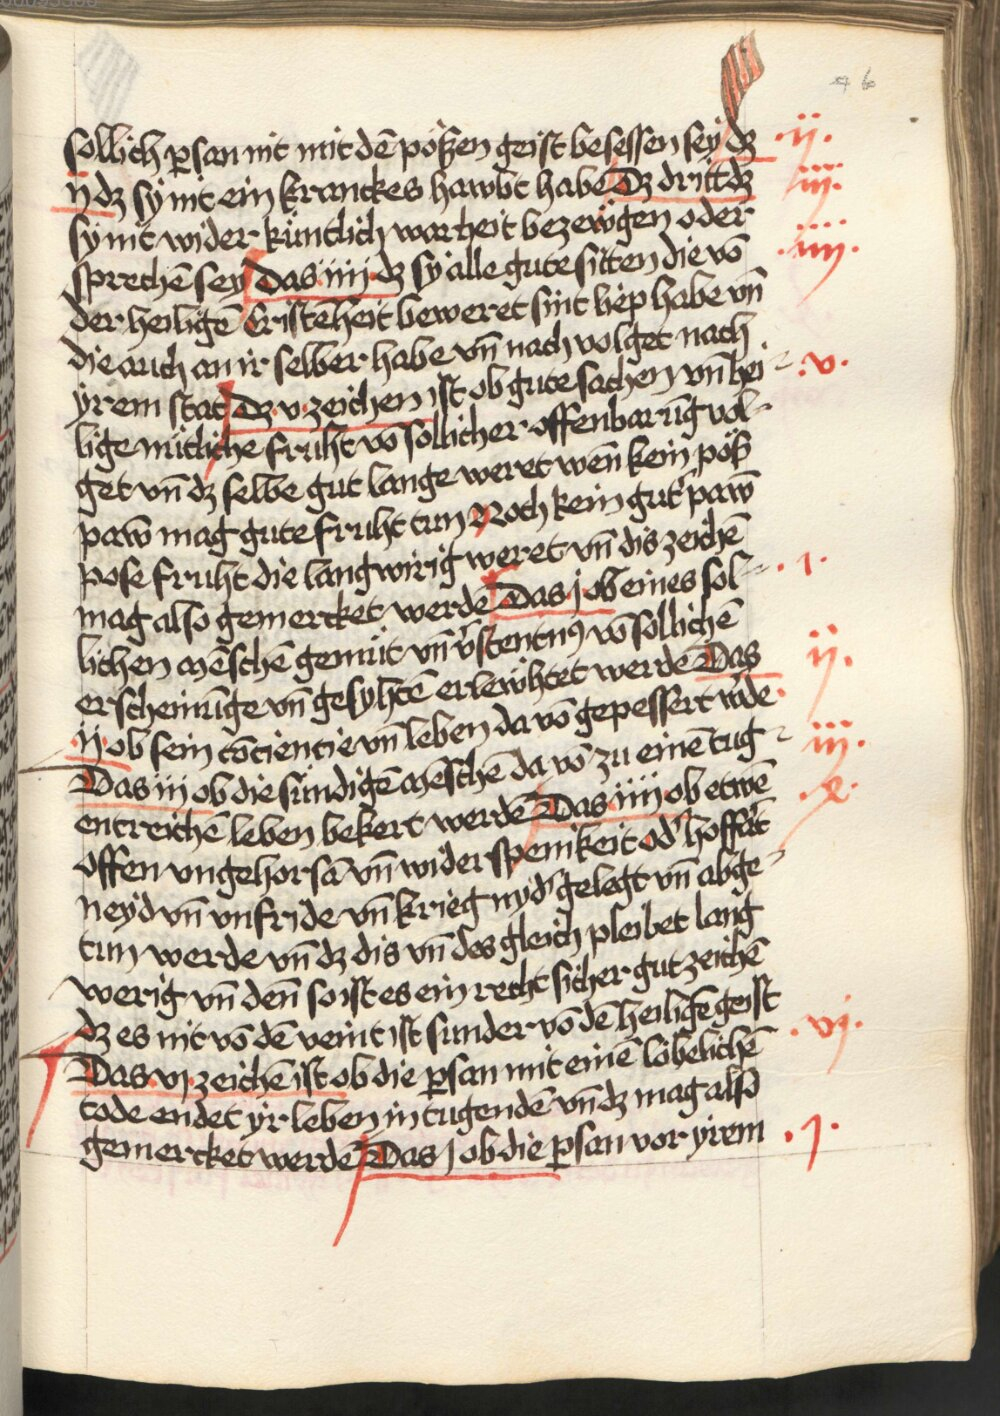 46
sollich ꝑsan nit mit dē pößen geist besessen sey dz .ij.
ij dz sy nit ein kranckes hawbt habe Dz dritt dz .iij.
sy nit wider kuntlich warheit bezewgen oder
sprechē sey Das iiij dz sy alle gute sitten die vō .iiij.
der heiligē Cristēheit beweret sint liep habe vn̄
die auch an ir selber habe vn̄ nach volget nach
yrem stat Dz .v. zeichen ist ob gute sachen vn̄ hei .v.
lige nutliche fruht vō sollicher offenbarūg vol
get vn̄ dz selbe gut lange weret wēn kein pöß
paw̄ mag gute fruht tun Noch kein gut paw̄
pose fruht die langwirig weret vn̄ dis zeichē
mag also gemercket werdē Das j ob eines sol .1.
lichen mēschē gemüt vn̄ v̓stentnꝰ vō sollichē
erscheinūge vn̄ gesyhtē erlewhtet werdē Das .ij.
ij ob sein cōciencie vn̄ leben da vō gepessert w̓de
Das iij ob die sündigē mēschē da vō zu einē tug .iij.
entreichē leben bekert werdē Das iiij ob etwē .x.
offen vngehorsā vn̄ widerspenikeit od̓ hoffart
neyd vn̄ vnfride vn̄ krieg nyd̓ gelegt vn̄ abge
tun werde vn̄ dz dis vn̄ des gleich pleibet lang
werig vn̄ den̄ so ist es ein recht sicher gut zeichē
dz es nit vō dē veint ist sunder vō dē heiligē geist
Das .vj. zeichē ist ob die ꝑsan mit einē lobelichē .vj.
tode endet yr leben in tugendē vn̄ dz mag also
gemercket werdē Das j ob die ꝑsan vor yrem .j.